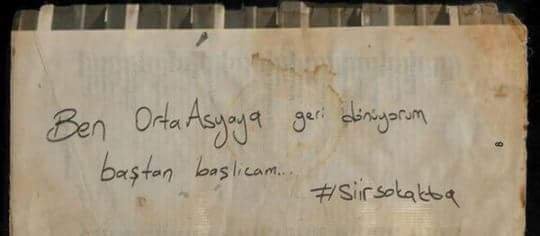 Ben Orta Asyaya geri dönüyorum
baştan başlıcam...
#Siirsokakta
8